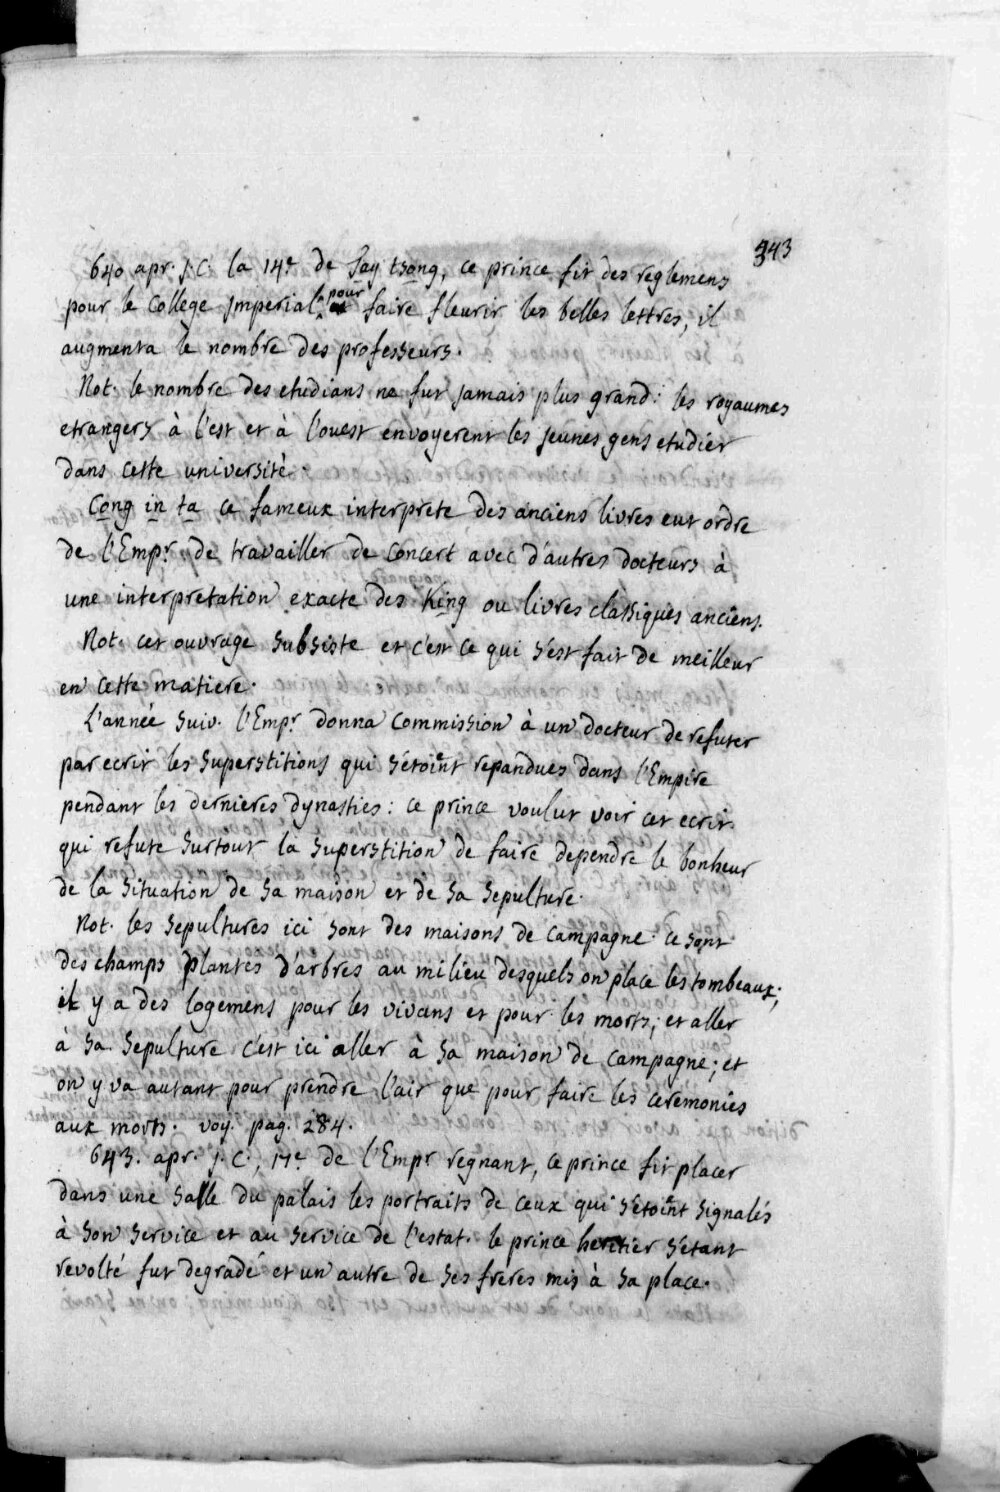 343
640 apr. J.C. la 14e de Tay tsong, ce prince fit des reglemens
pour le College Imperial, pour faire fleurir les belles lettres, il
augmenta le nombre des professeurs.
Not. le nombre des etudians ne fut jamais plus grand: les royaumes
etrangers à l'est et à l'ouest envoyerent les jeunes gens etudier
dans cette université.
Cong in ta ce fameux interprete des anciens livres eut ordre
de l'Empr. de travailler de concert avec d'autres docteurs à
une interpretation exacte des King ou livres classiques anciens.
Not. cet ouvrage subsiste et c'est ce qui s'est fait de meilleur
en cette matiere.
L'année suiv. l'Empr. donna commission à un docteur de refuter
par ecrit les superstitions qui s'étoient repandues dans l'Empire
pendant les dernieres dynasties: ce prince voulut voir cet ecrit
qui refute surtout la superstition de faire dependre le bonheur
de la situation de sa maison et de sa sepulture.
Not. les sepultures ici sont des maisons de campagne. ce sont
des champs plantés d'arbres au milieu desquels on place les tombeaux;
il y a des logemens pour les vivans et pour les morts; et aller
à sa sepulture c'est ici aller à sa maison de campagne; et
on y va autant pour prendre l'air que pour faire les ceremonies
aux morts. voy. pag. 284.
643. apr. J.C., 17e de l'Empr regnant, ce prince fit placer
dans une salle du palais les portraits de ceux qui s'étoient signalés
à son service et au service de l'estat. le prince heritier s'etant
revolté fut degradé et un autre de ses freres mis à sa place.